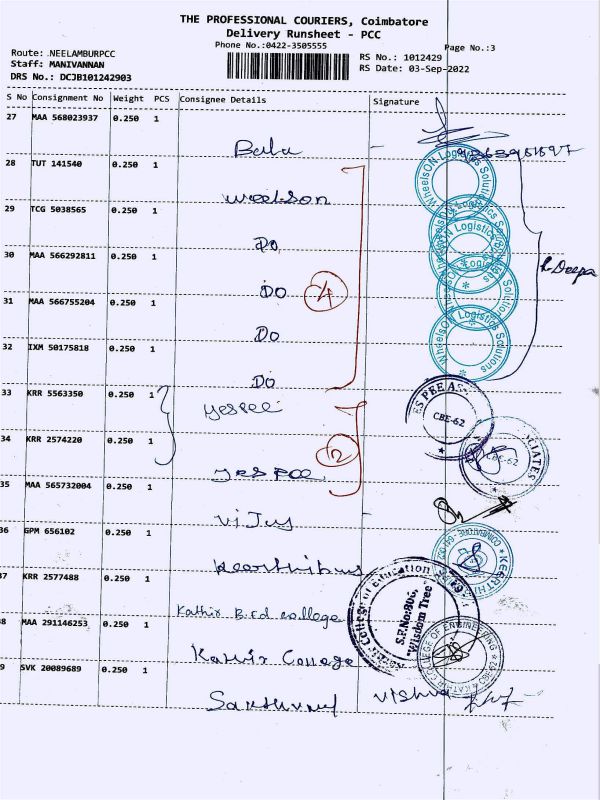 THE PROFESSIONAL COURIERS, Coimbatore
Delivery Runsheet - PCC
Phone No.:0422-3505555
Page No.:3
Route: .NEELAMBURPCC
Staff: MANIVANNAN
DRS No.: DCJB101242903
RS No.: 1012429
RS Date: 03-Sep-2022
S No Consignment No Weight PCS Consignee Details Signature
27 MAA 568023937 0.250 1
Balu
28 TUT 141540 0.250 1
Weelson
29 TCG 5038565 0.250 1
Do
30 MAA 566292811 0.250 1
Do 4
31 MAA 566755204 0.250 1
Do
32 IXM 50175818 0.250 1
Do
WheelsON Logistics Solutions
Deepa
33 KRR 5563350 0.250 1
yespee
ES PEE ASS
CBE-62
34 KRR 2574220 0.250 1
2
yespee
CIATES
CBE-62
35 MAA 565732004 0.250 1
Vijus
36 GPM 656102 0.250 1
COIMBATORE
KEERTHI
37 KRR 2577488 0.250 1
Kathir B.Ed college
College of Education
S.F.No:806,
"Wisdom Tree"
38 MAA 291146253 0.250 1
Kathir College
KATHIR COLLEGE OF ENGINEERING
39 SVK 20089689 0.250 1
Vishva